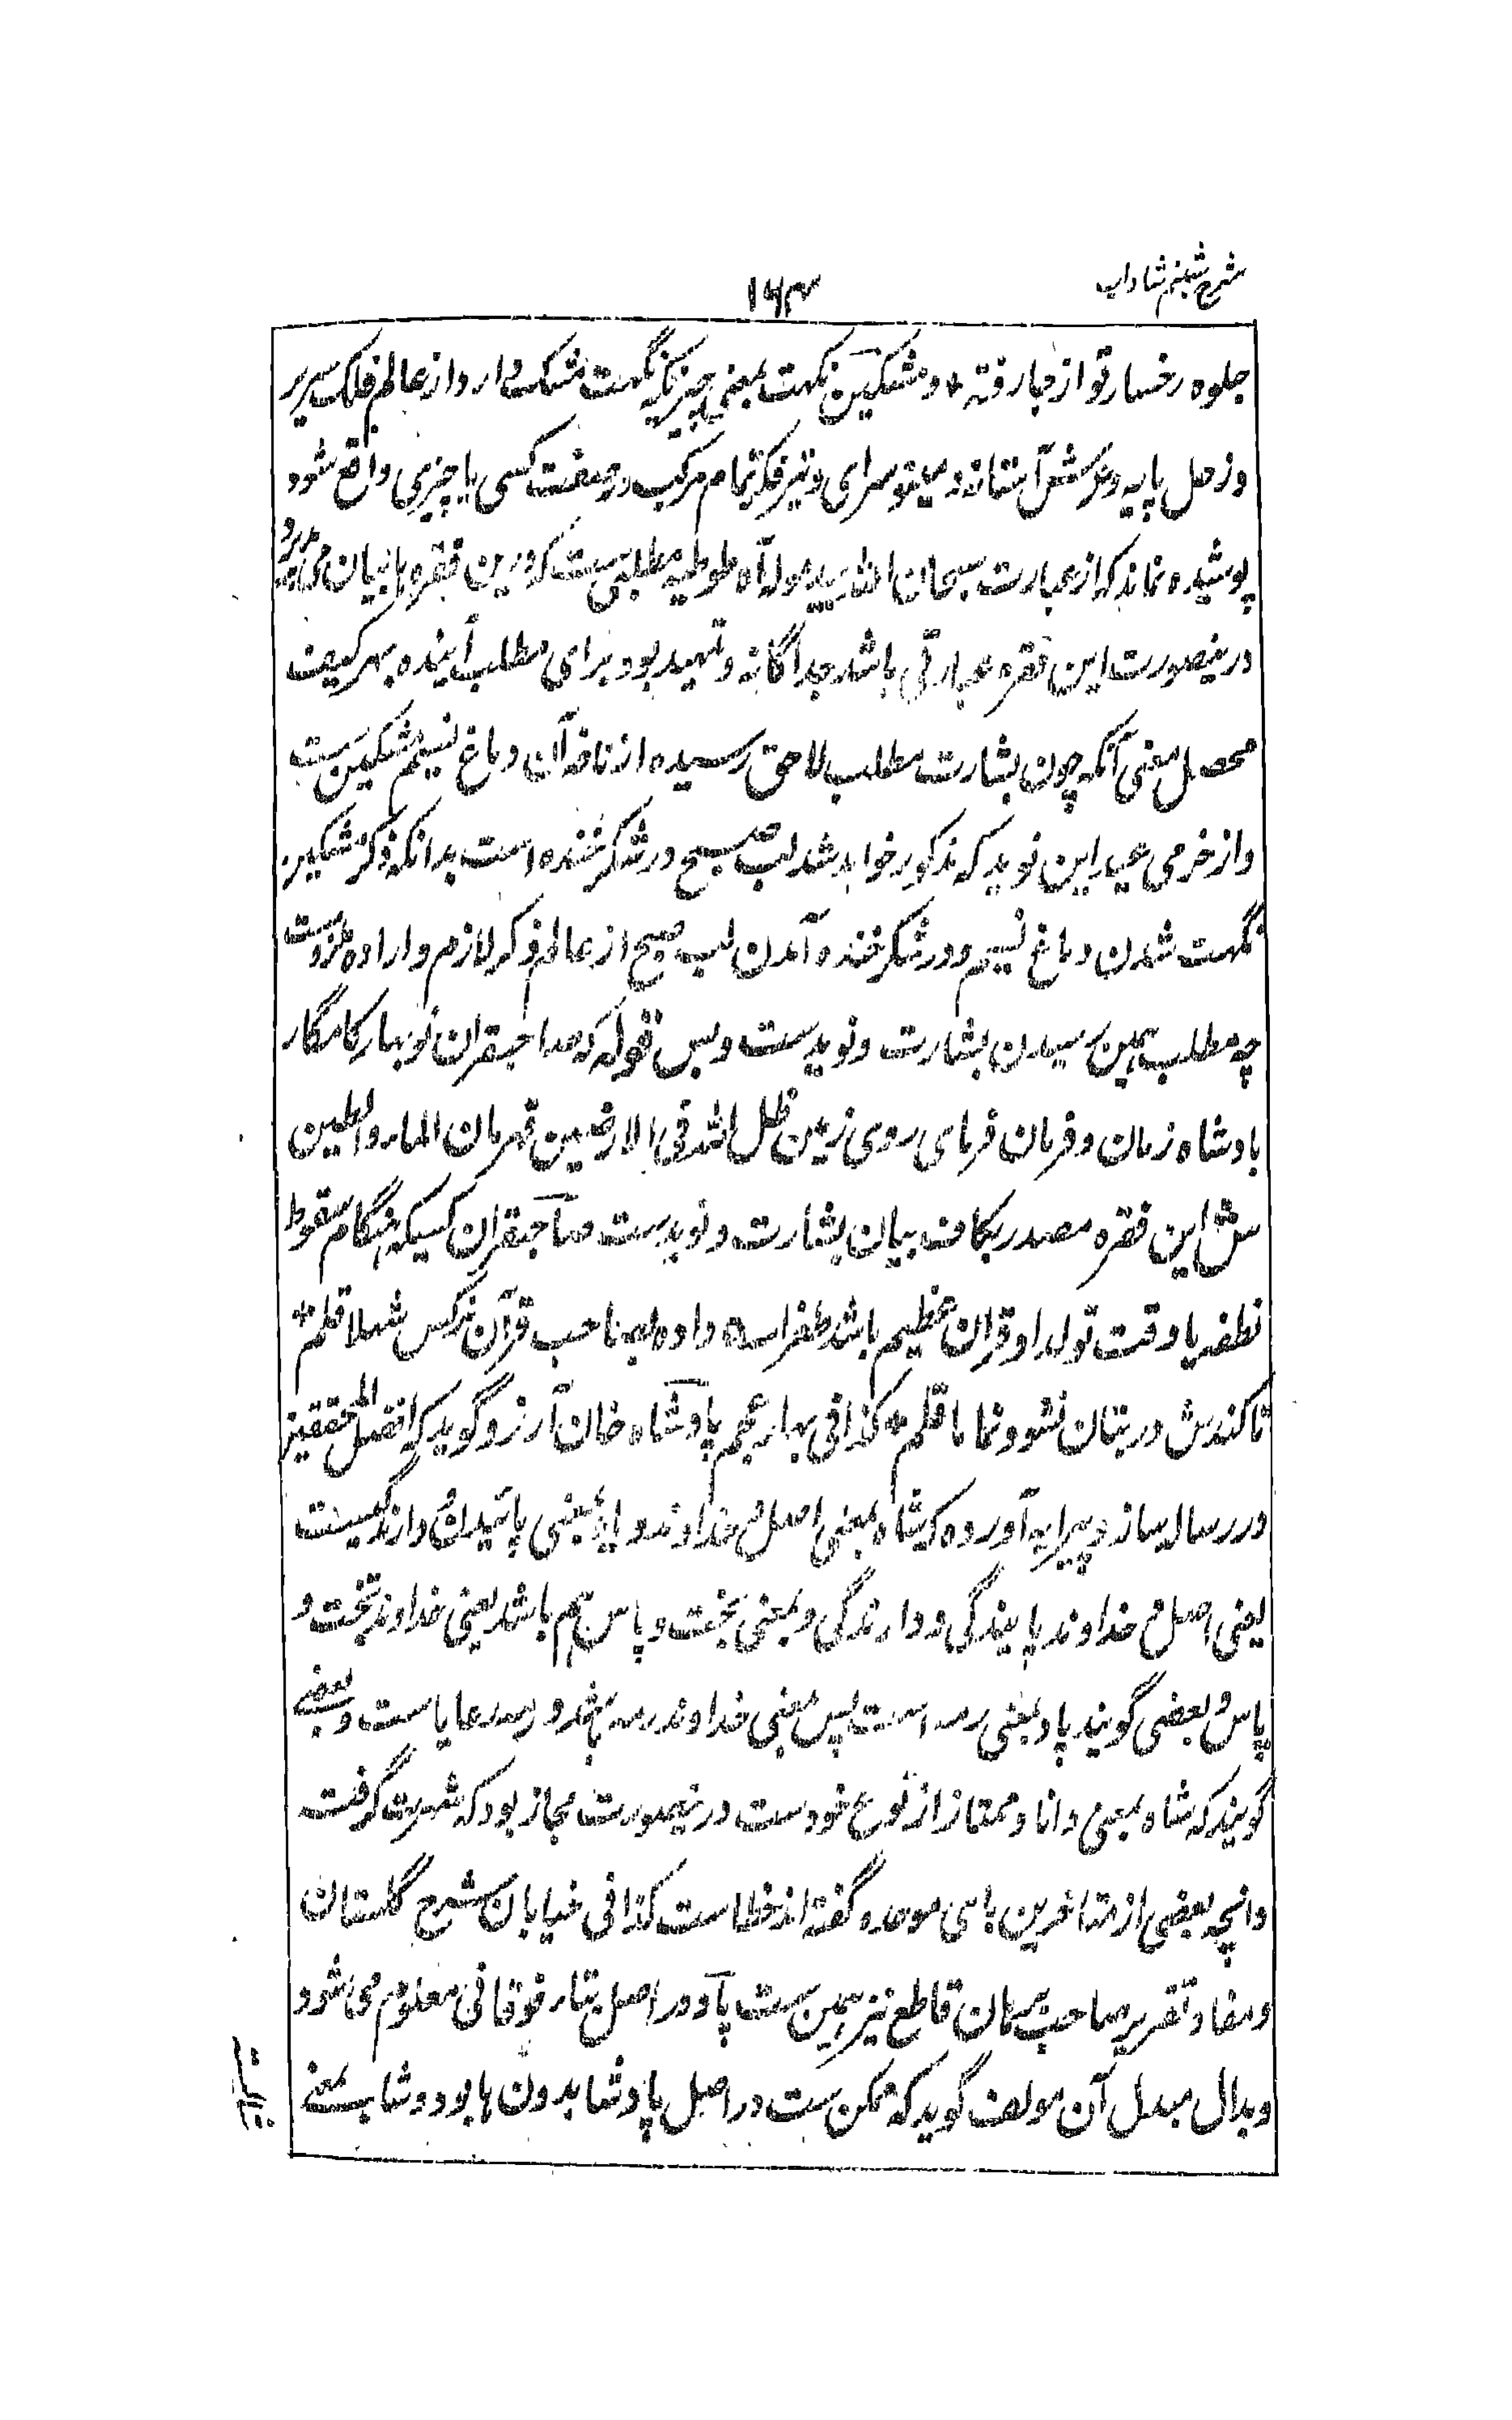 شرح شبنم شاداب
۱۶۴
جلوه رخسار تو از جا رفته * و مشکین نکهت بمعنی چیزیکه نکهت مشک دارد و از عالم فلک سریر
وزحل پایه و عرش آستانه و مینو سرای و تیز فکر تمام مرکب در صفت کسی یا چیزی واقع شود
پوشیده نماند که از عبارت سبحان الله توطیه مطلبی ست که درین فقره ها بیان می
درینصورت این فقره عبارتی باشد جداگانه و تمهید بود برای مطلب آینده بهر کیف
محصل معنی آنکه چون بشارت مطلب لاحق رسیده از نافه آن دماغ نسیم مشکین ست
و از خرمی عید این نوید که مذکور خواهد شد لب صبح در شکر خنده است بدانکه ذکر مشکین
نکهت شدن دماغ نسیم و در شکر خنده آمدن لب صبح از عالم ذکر لازم و اراده ملزوم ست
چه مطلب همین رسیدن بشارت و نوید ست و بس قوله که صاحبقران نوبهار کامگار
بادشاه زمان و فرمان فرمای روی زمین ظل الله فی الارضین قهرمان الماء و الطین
ش این فقره مصدر بکاف بیان بشارت و نوید ست صاحبقران کسیکه هنگام سقوط
نطفه یا وقت تولد او قران عظیم باشد طغرا ۵ داده بصاحب قران نرگس شهلا قلم *
تا کندش در بتان نشو و نما با قلم * کذا فی بهار عجم پادشاه خان آرزو گوید که افضل المحققین
در رساله ساز و پیرایه آورده که شاه بمعنی اصل و خداوند و پاد بمعنی پائیدن و دارندگیست
یعنی اصل و خداوند پایندگی و دارندگی و بمعنی تخت و پاس هم باشد یعنی خداوند تخت و
پاس و بعضی گویند پاد بمعنی رمه است پس معنی خداوند رمه باشد و رمه رعایاست و بعضی
گویند که شاه بمعنی دانا و ممتاز از نوع خودست درینصورت مجاز بود که شهرت گرفت
وانچه بعضی از متاخرین با بای موحده گفته اند خطاست کذا فی خیابان شرح گلستان
و مفاد تقریر صاحب برهان قاطع نیز همین ست پآد در اصل بتاء فوقانی معلوم می شود
و بدال مبدل آن مولف گوید که ممکن ست در اصل پادشا بدون ها بود و شا بمعنی